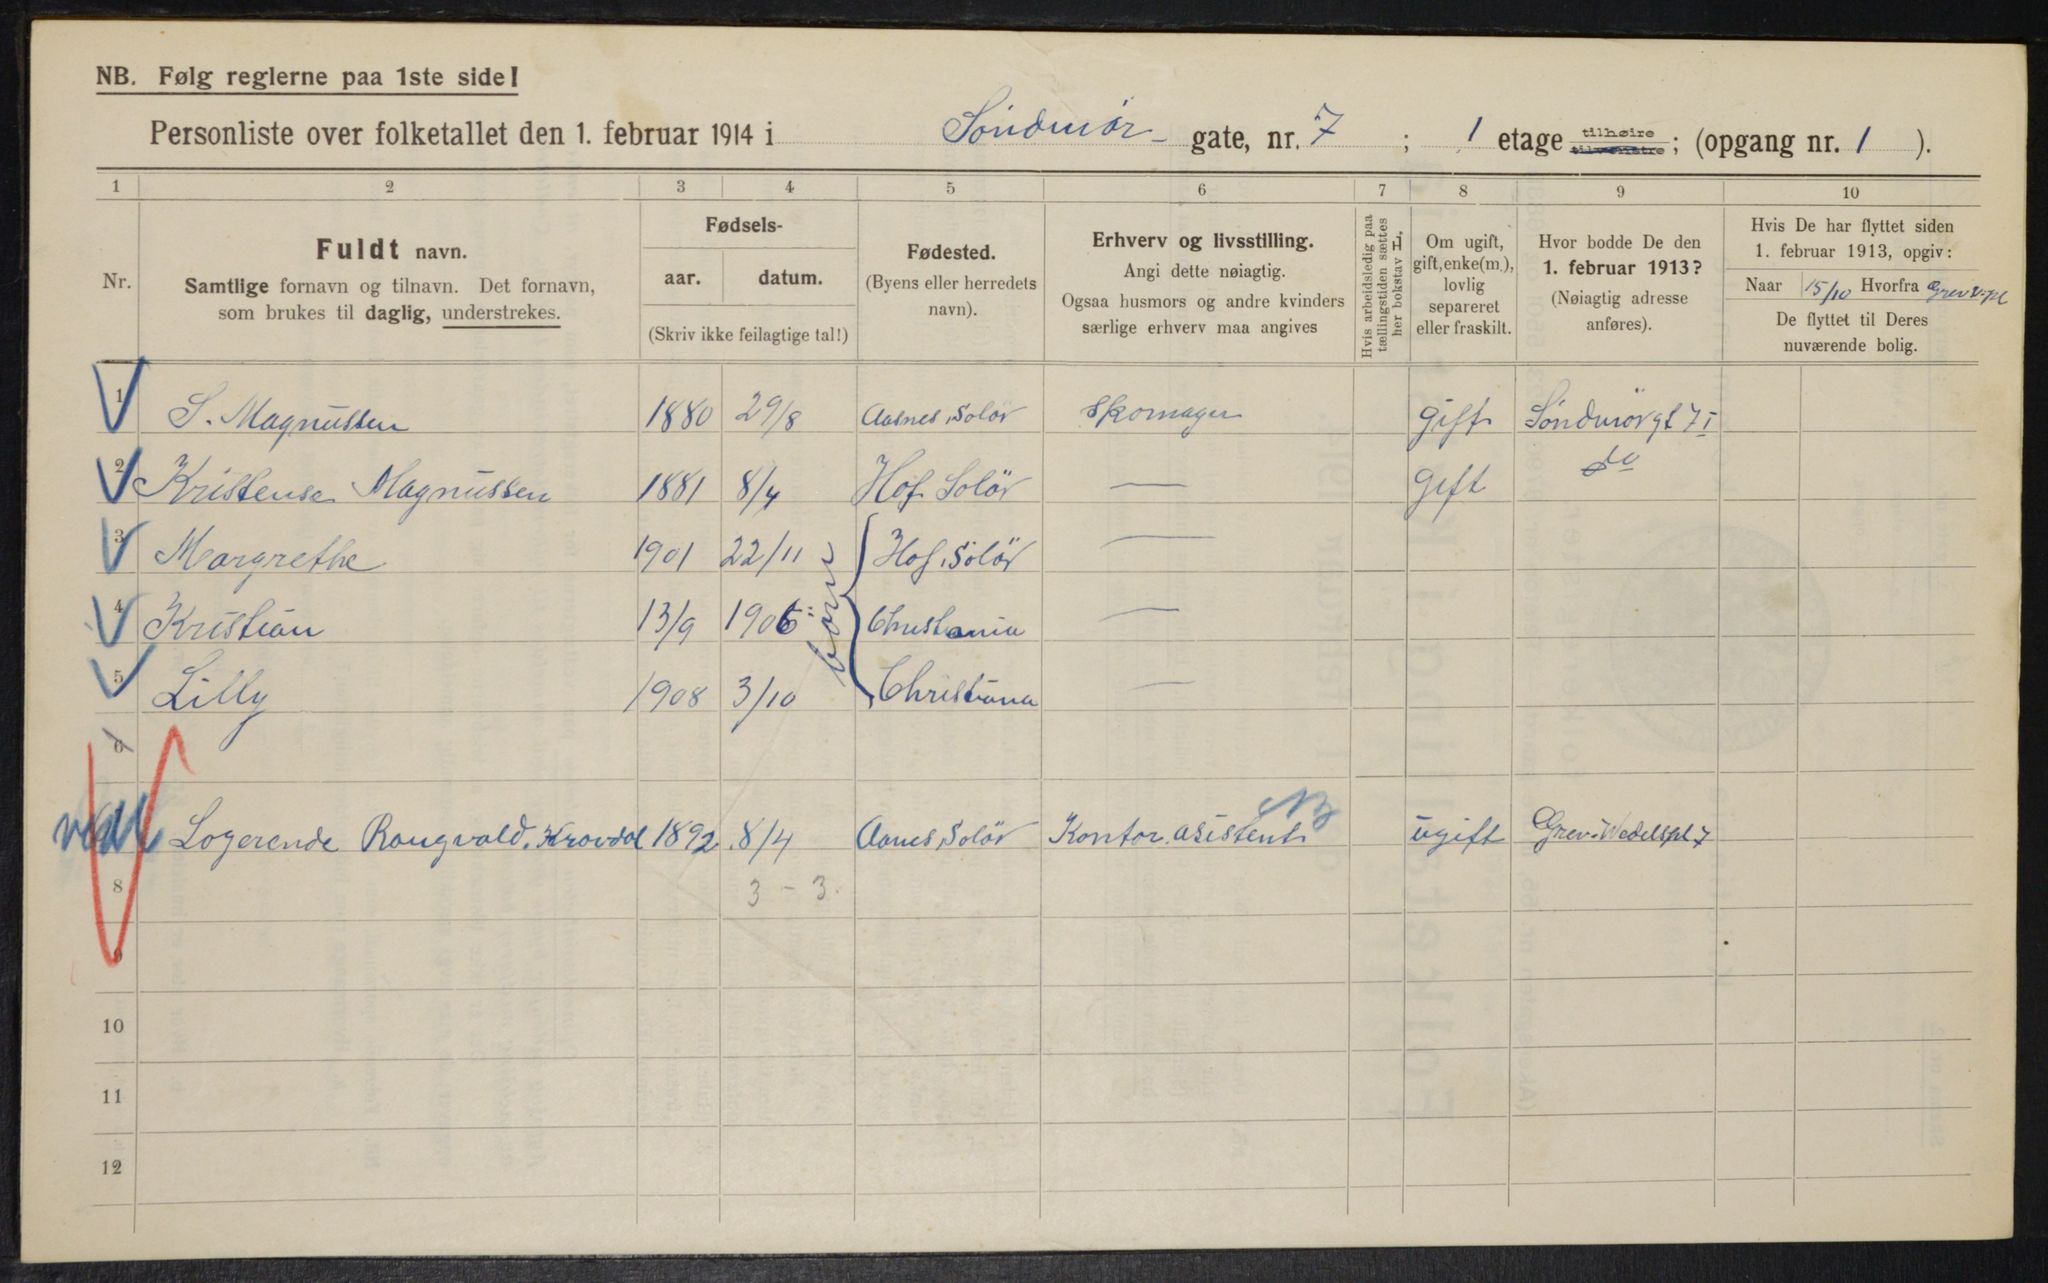 NB. Følg reglerne paa 1ste side!
Personliste over folketallet den 1. februar 1914 i Söndmör- gate, nr. 7 ; 1 etage tilhøire tilvenstre; (opgang nr. 1 ).
1 2 3 4 5 6 7 8 9 10
Nr.
Fuldt navn.
Samtlige fornavn og tilnavn. Det fornavn,
som brukes til daglig, understrekes.
Fødsels-
aar. datum.
(Skriv ikke feilagtige tal!)
Fødested.
(Byens eller herredets
navn).
Erhverv og livsstilling.
Angi dette nøiagtig.
Ogsaa husmors og andre kvinders
særlige erhverv maa angives
Hvis arbeidsledig paa
tællingstiden sættes
her bokstav L.
Om ugift,
gift, enke(m.),
lovlig
separeret
eller fraskilt.
Hvor bodde De den
1. februar 1913?
(Nøiagtig adresse
anføres).
Hvis De har flyttet siden
1. februar 1913, opgiv:
Naar 15/10 Hvorfra Grev V. pl
De flyttet til Deres
nuværende bolig.
1 S. Magnussen 1880 29/8 Aasnes, Solör Skomager gift Söndmörgt 7 I
2 Kristense Magnussen 1881 8/4 Hof Solör — Gift do
3 Margrethe 1901 22/11 Hof, Solör —
4 Kristian 13/9 1906 Christania —
börn
5 Lilly 1908 3/10 Christiana —
6
Logerende Rangvald. Kravdal 1892 8/4 Aanes, Solör Kontor. asistent NB ugift Grev. Wedelspl 7
8 3 - 3.
9
10
11
12